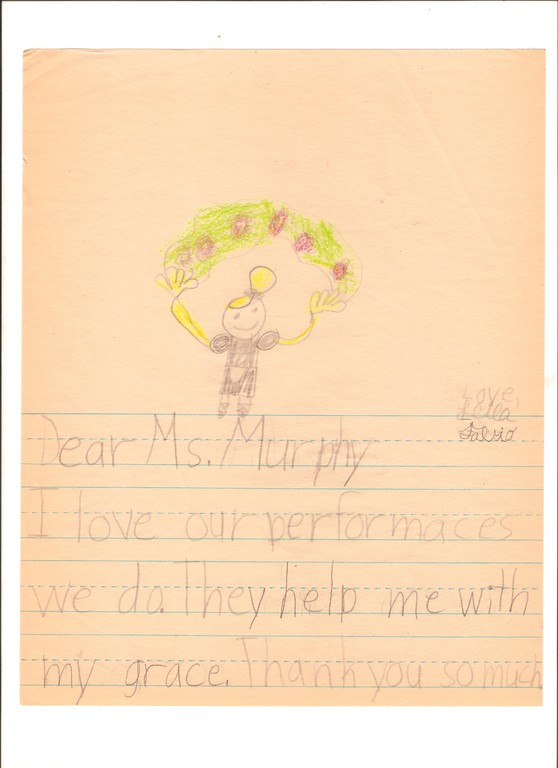 Love,
Dear Ms. Murphy
I love our performaces
we do. They help me with
my grace. Thank you so much